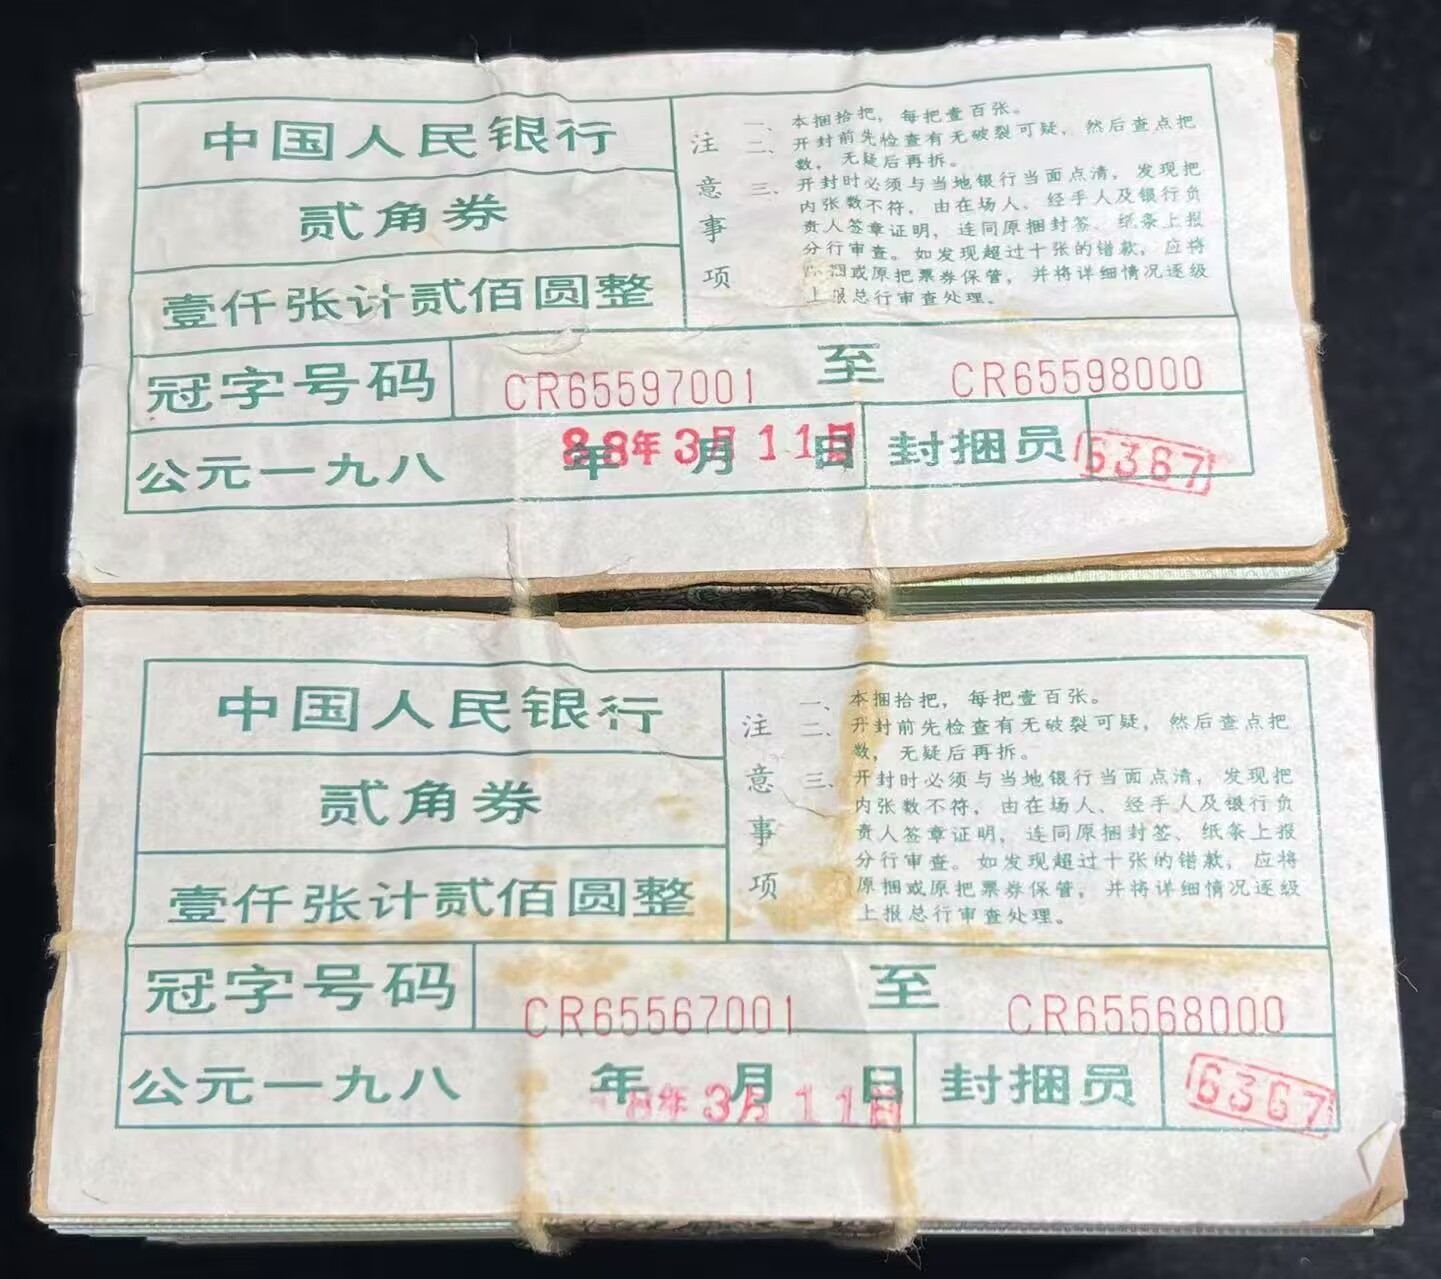 中国人民银行
贰角券
壹仟张计贰佰圆整
注意事项
一、本捆拾把，每把壹百张。
二、开封前先检查有无破裂可疑，然后查点把
数，无疑后再拆。
三、开封时必须与当地银行当面点清，发现把
内张数不符，由在场人、经手人及银行负
责人签章证明，连同原捆封签、纸条上报
分行审查。如发现超过十张的错款，应将
原捆或原把票券保管，并将详细情况逐级
上报总行审查处理。
冠字号码 CR65597001 至 CR65598000
公元一九八 年 月 日 封捆员 6367
88年3月11日
中国人民银行
贰角券
壹仟张计贰佰圆整
注意事项
一、本捆拾把，每把壹百张。
二、开封前先检查有无破裂可疑，然后查点把
数，无疑后再拆。
三、开封时必须与当地银行当面点清，发现把
内张数不符，由在场人、经手人及银行负
责人签章证明，连同原捆封签、纸条上报
分行审查。如发现超过十张的错款，应将
原捆或原把票券保管，并将详细情况逐级
上报总行审查处理。
冠字号码 CR65567001 至 CR65568000
公元一九八 年 月 日 封捆员 6367
8年3月11日